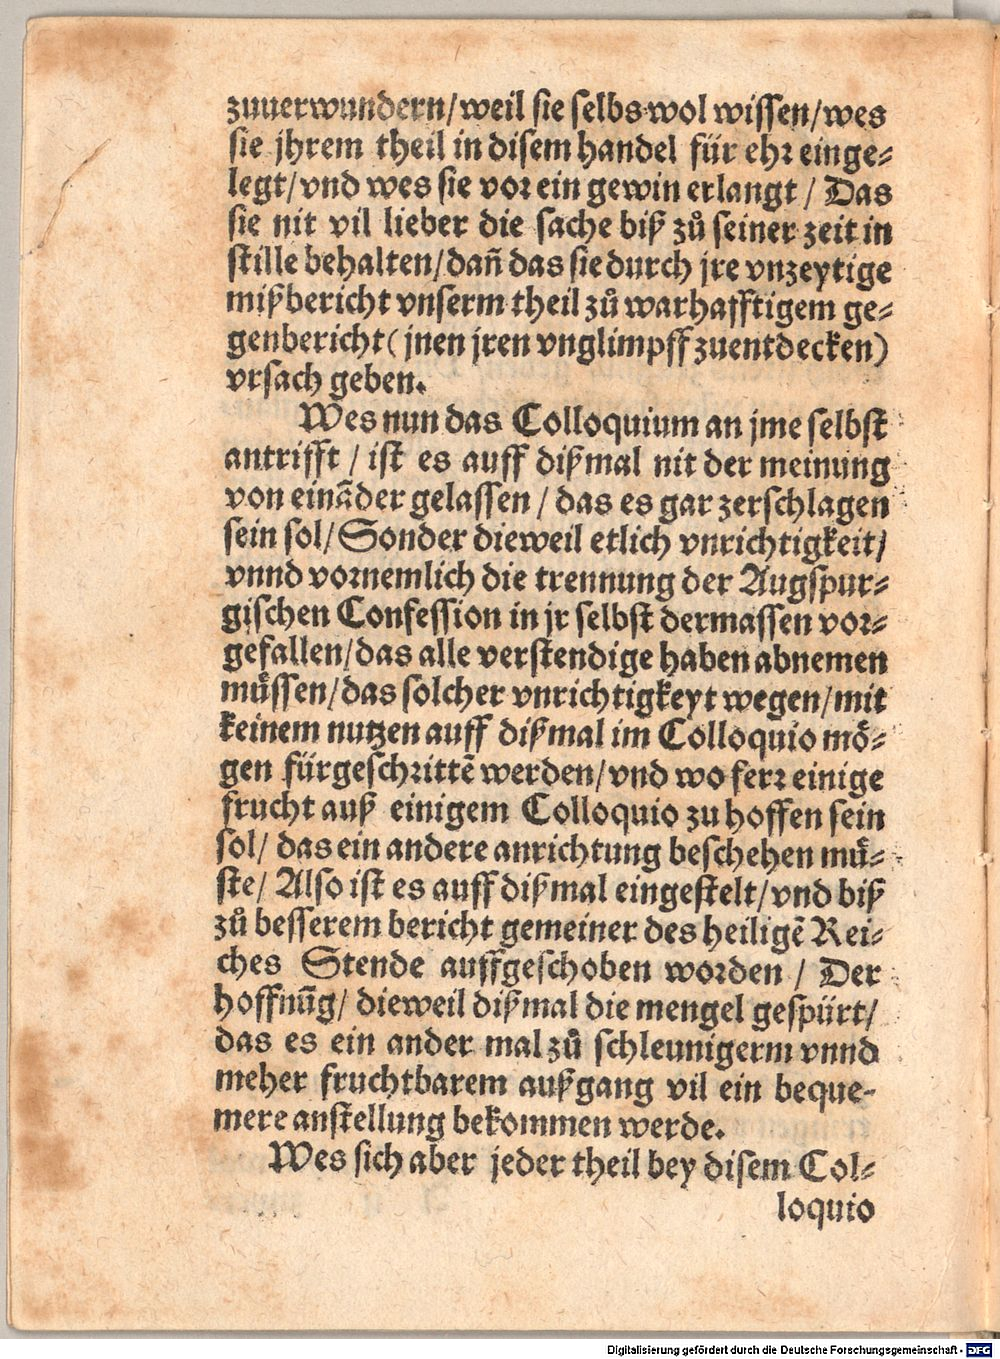 zuuerwundern/weil sie selbs wol wissen/wes
sie jhrem theil in disem handel für ehr einge⸗
legt/vnd wes sie vor ein gewin erlangt / Das
sie nit vil lieber die sache biß zů seiner zeit in
stille behalten/dañ das sie durch jre vnzeytige
mißbericht vnserm theil zů warhafftigem ge⸗
genbericht (jnen jren vnglimpff zuentdecken)
vrsach geben.
Wes nun das Colloquium an jme selbst
antrifft / ist es auff dißmal nit der meinung
von einãder gelassen / das es gar zerschlagen
sein sol/ Sonder dieweil etlich vnrichtigkeit/
vnnd vornemlich die trennung der Augspur⸗
gischen Confession in jr selbst dermassen vor⸗
gefallen/das alle verstendige haben abnemen
müssen/das solcher vnrichtigkeyt wegen/mit
keinem nutzen auff dißmal im Colloquio mö⸗
gen fürgeschrittẽ werden/vnd wo ferr einige
frucht auß einigem Colloquio zu hoffen sein
sol/ das ein andere anrichtung beschehen mü⸗
ste/ Also ist es auff dißmal eingestelt/vnd biß
zů besserem bericht gemeiner des heiligẽ Rei⸗
ches Stende auffgeschoben worden / Der
hoffnũg/ dieweil dißmal die mengel gespürt/
das es ein ander mal zů schleunigerm vnnd
meher fruchtbarem außgang vil ein beque-
mere anstellung bekommen werde.
Wes sich aber jeder theil bey disem Col⸗
loquio
Digitalisierung gefördert durch die Deutsche Forschungsgemeinschaft - DFG